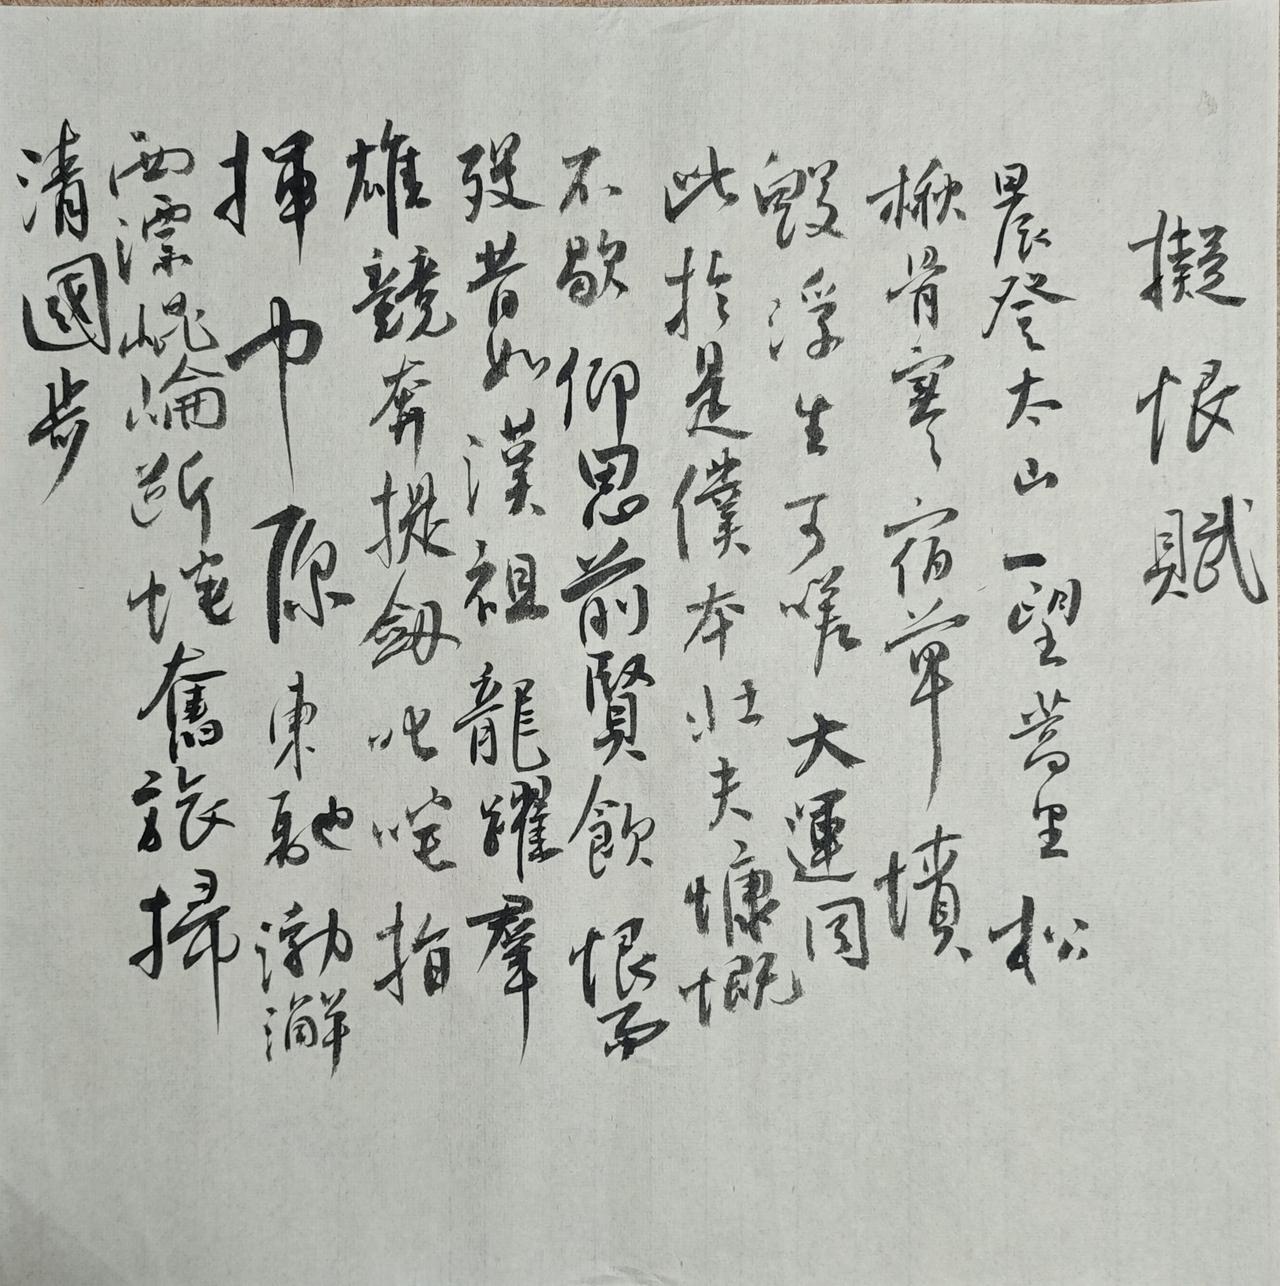 擬恨賦
晨登太山一望蒿里松
楸骨寒宿草墳
毀浮生可嗟大運同
此於是僕本壯夫慷慨
不歇仰思前賢飲恨而
歿昔如漢祖龍躍羣
雄競奔提劒叱咤指
揮中原東馳渤澥
西漂崐崘斷蛇奮旅掃
清國步